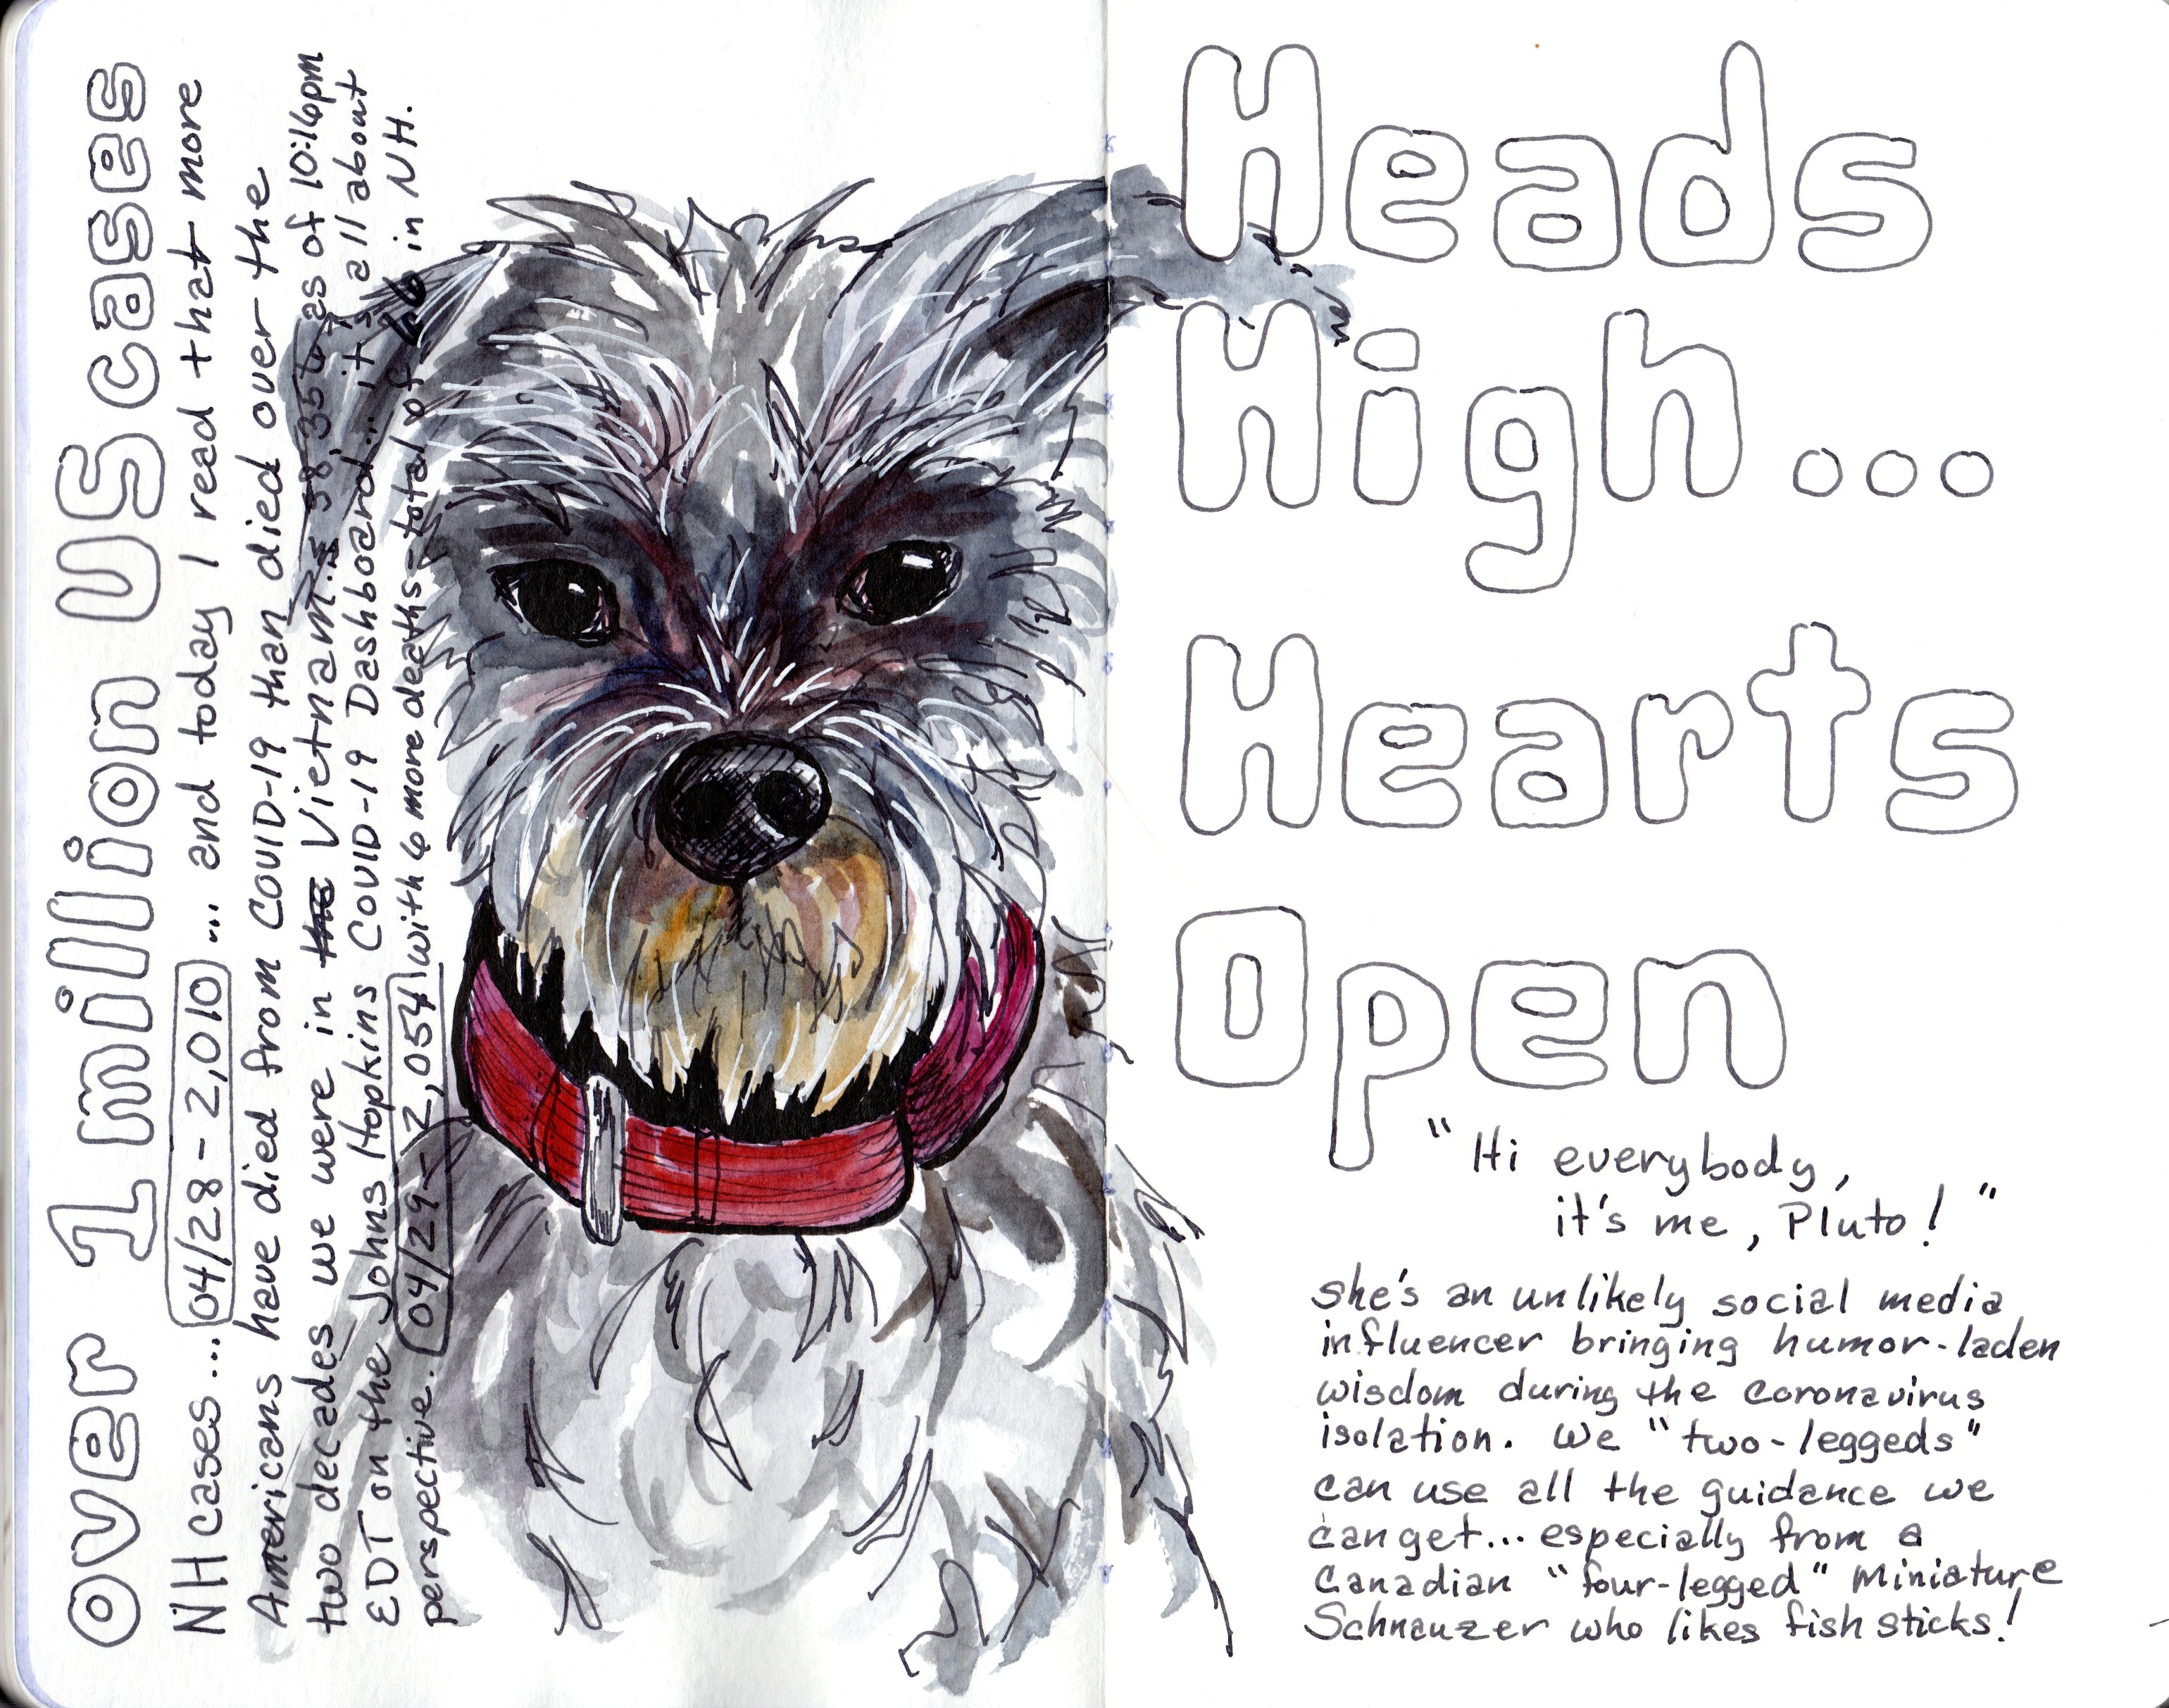 over 1 million US cases
NH cases.... 04/28 - 2,010 ... and today I read that more
Americans have died from COVID-19 than died over the
two decades we were in Vietnam... as of 10:16pm
EDT on the Johns Hopkins COVID-19 Dashboard... it's all about
perspective. 04/29 - 2,054 with 6 more deaths - total of 66 in NH.
Heads
High...
Hearts
Open
"Hi everybody,
it's me, Pluto!"
She's an unlikely social media
influencer bringing humor-laden
wisdom during the coronavirus
isolation. We "two-leggeds"
can use all the guidance we
can get... especially from a
Canadian "four-legged" Miniature
Schnauzer who likes fish sticks!